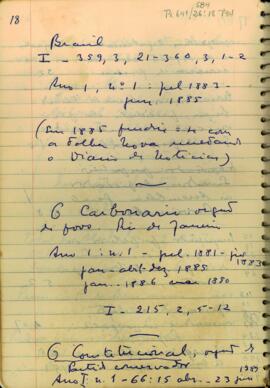 18
584
Brasil
I - 359, 3, 21-360, 3, 1-2
Ano 1, nº 1: jul 1883-
jun 1885
(Em 1885 fundiu-se com
a Folha Nova
o Diario de Noticias)
O Carbonario: orgão
do povo. Rio de Janeiro
Ano 1: n. 1 - jul. 1881-
1883
jan-abril-dez 1885
jan. 1886 1890
I - 215, 2, 5-12
O Constitucional, orgão do
Partido conservador
Ano I: n. 1-66: 15 abr. - 23